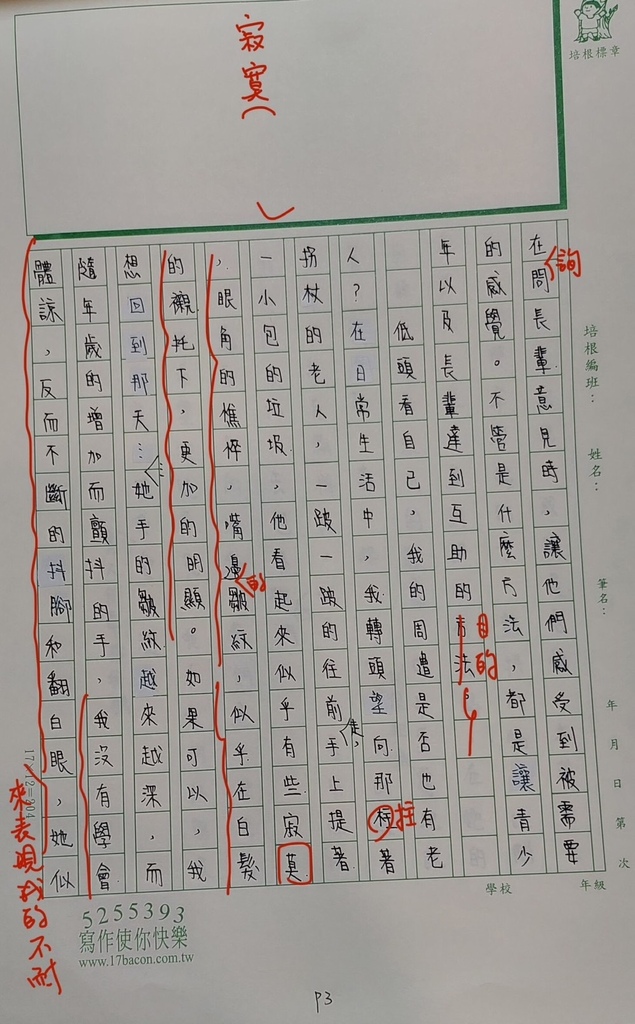 寂寞
培根標章
培根編班：
姓名：
筆名：
年 月 日 第 次
學校
年級
在問長輩意見時，讓他們感受到被需要
詢
的感覺。不管是什麼方法，都是讓青少
年以及長輩達到互助的方法。
目的
低頭看自己，我的周遭是否也有老
人？在日常生活中，我轉頭望向那柱著
拄
拐杖的老人，一跛一跛的往前走，手上提著
一小包的垃圾，他看起來似乎有些寂莫
，眼角的憔悴，嘴邊皺紋，似乎在白髮
的
的襯托下，更加的明顯。如果可以，我
想回到那天……她手的皺紋越來越深，而
隨年歲的增加而顫抖的手，我沒有學會
體諒，反而不斷的抖腳和翻白眼，她似
來表現我的不耐
5255393
寫作使你快樂
www.17bacon.com.tw
P3